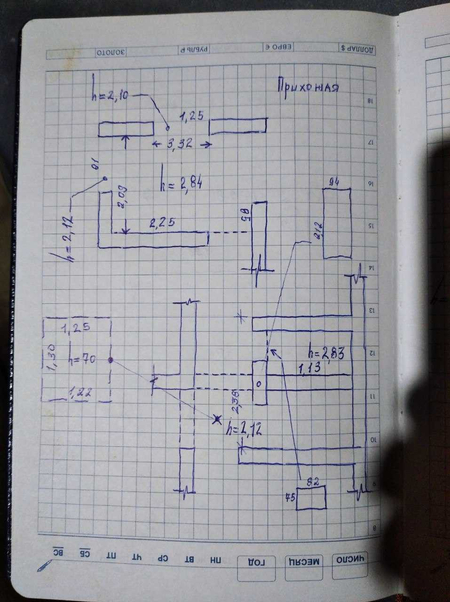 ЗОЛОТО
РУБЛЬ ₽
ЕВРО €
ДОЛЛАР $
Прихожая
h=2,10
1,25
3,32
h=2,84
2,03
h=2,12
2,25
94
212
1,25
1,30
h=70
1,22
h=2,83
1,13
2,38
h=2,12
82
75
18
17
16
15
14
13
12
11
10
9
8
ЧИСЛО
МЕСЯЦ
ГОД
ПН ВТ СР ЧТ ПТ СБ ВС